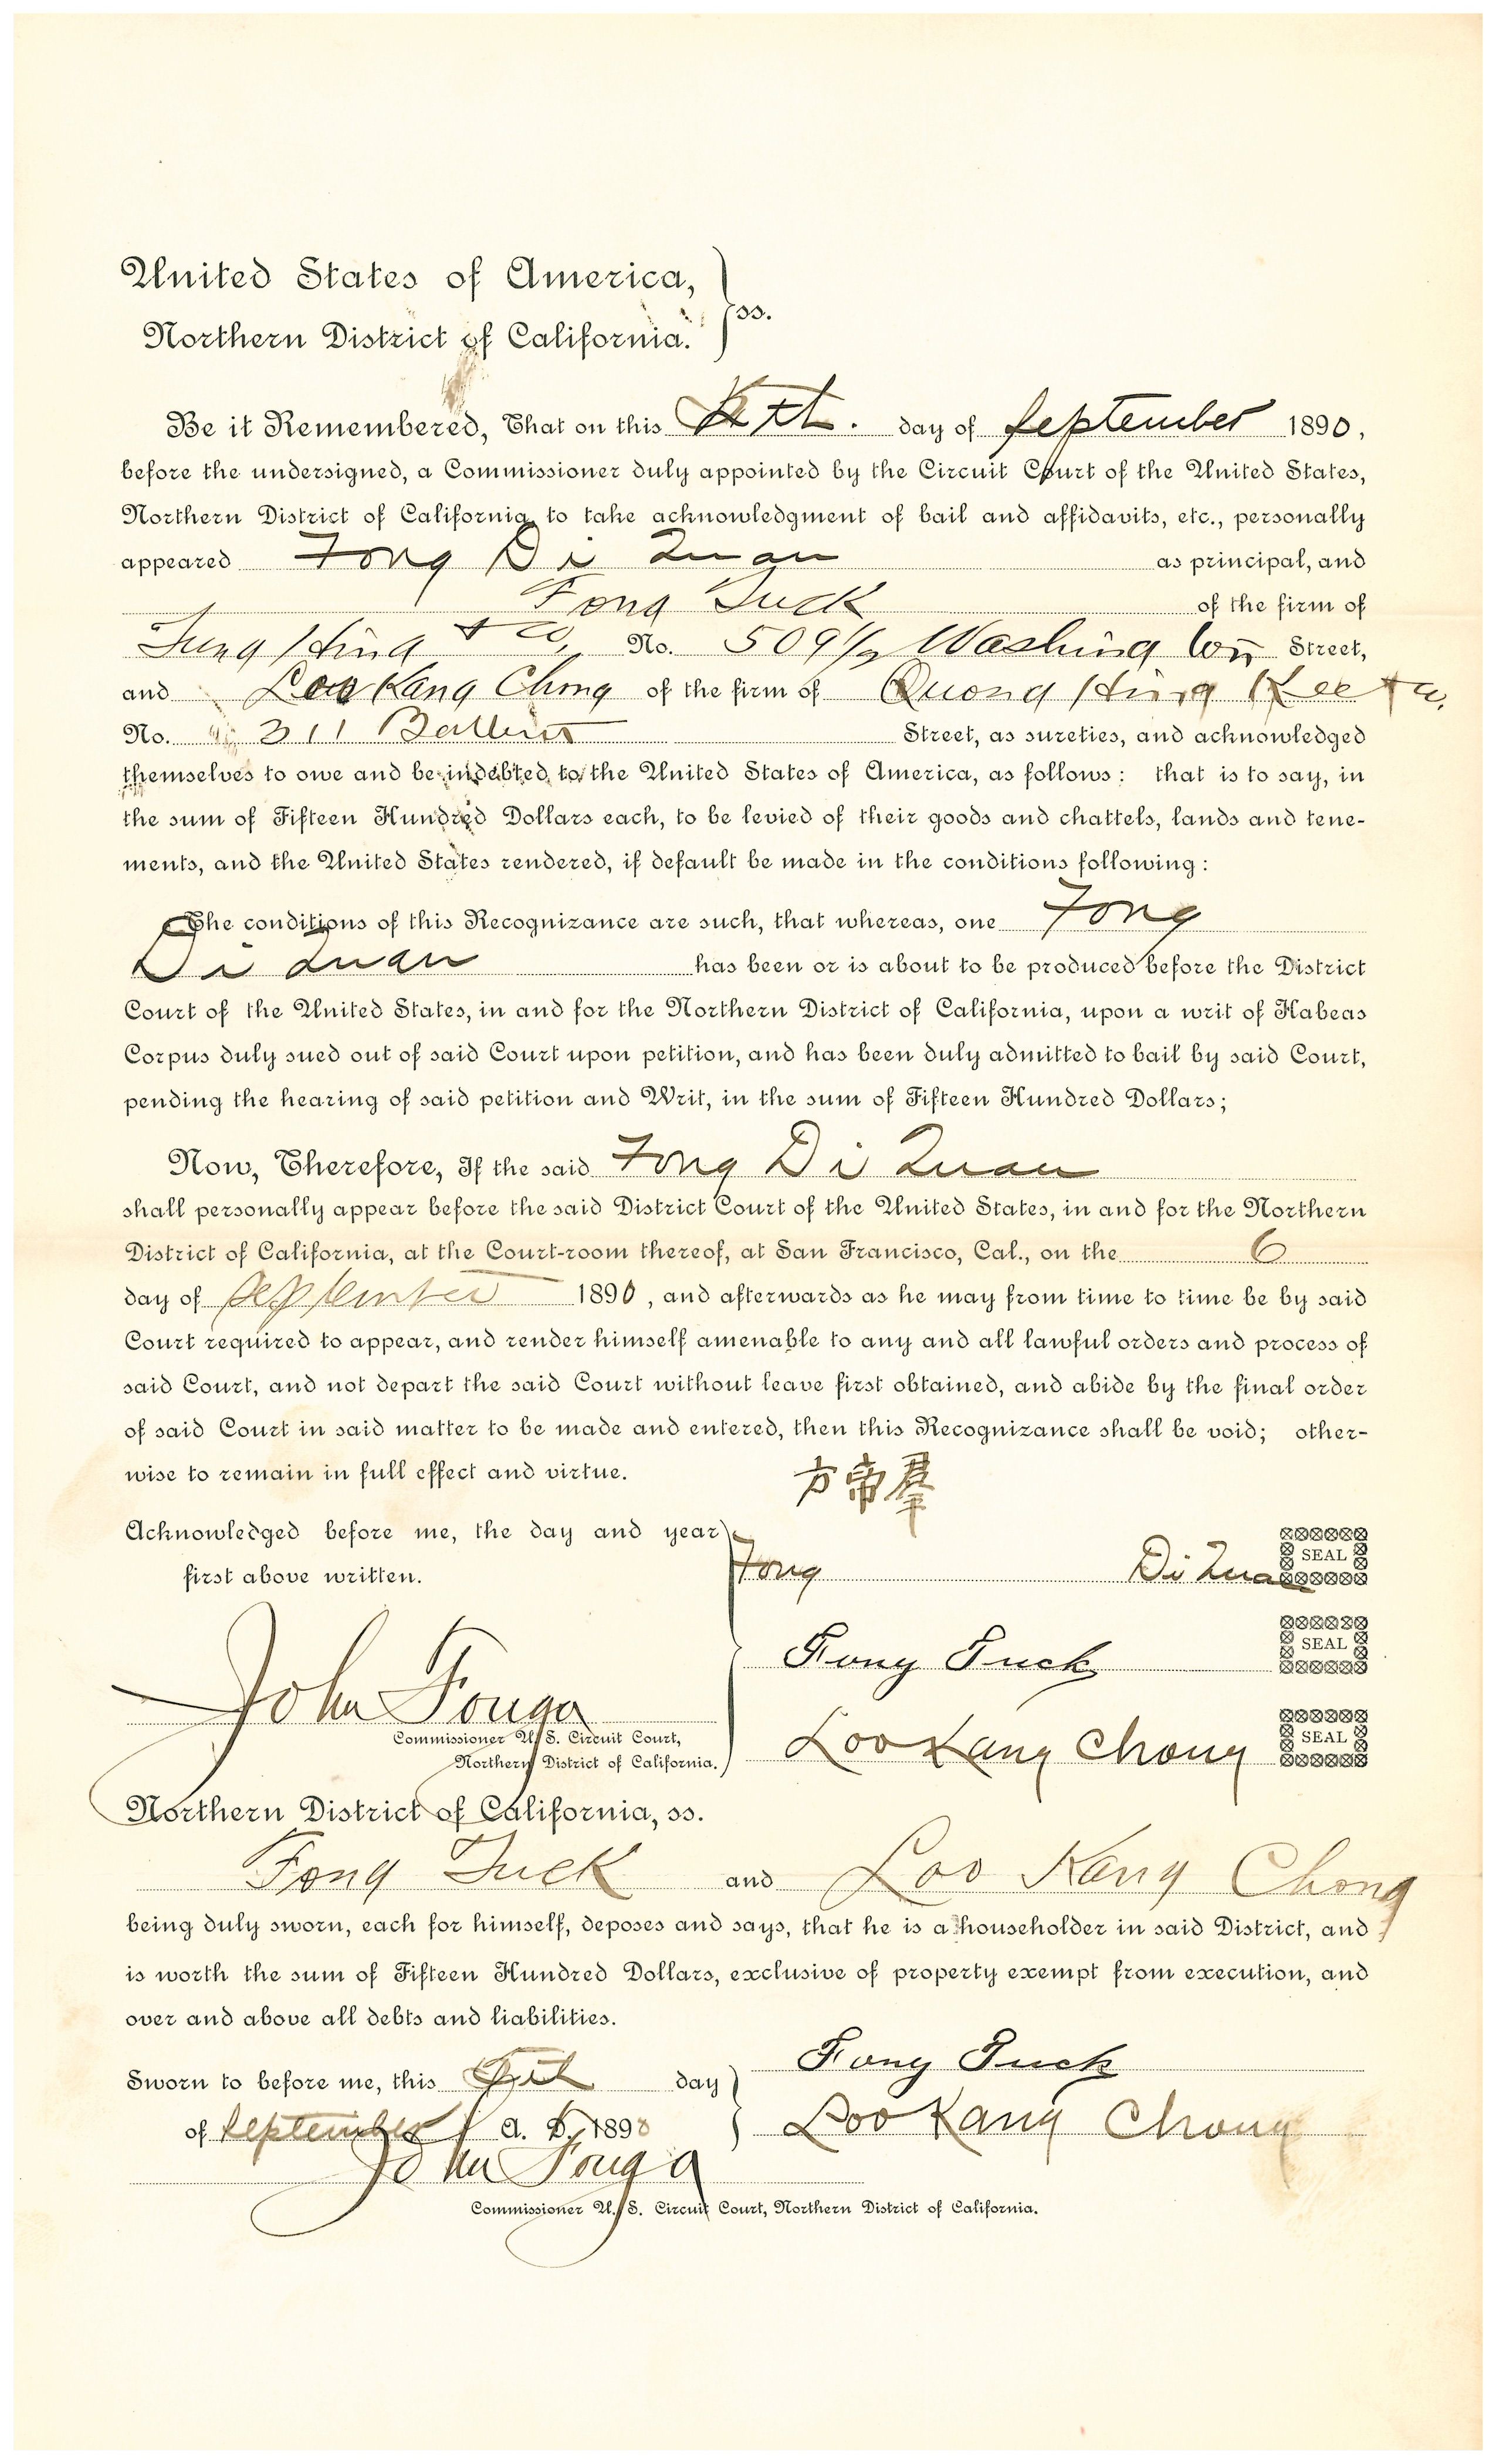 United States of America,
Northern District of California. } ss.
Be it Remembered, That on this day of September 1890,
before the undersigned, a Commissioner duly appointed by the Circuit Court of the United States,
Northern District of California, to take acknowledgment of bail and affidavits, etc., personally
appeared Fong Di Quan as principal, and
Fong Tuck of the firm of
Tung Hing & Co, No. 509 1/2 Washington Street,
and Loo Kang Chong of the firm of Quong Hing Kee & Co.
No. 311 Street, as sureties, and acknowledged
themselves to owe and be indebted to the United States of America, as follows: that is to say, in
the sum of Fifteen Hundred Dollars each, to be levied of their goods and chattels, lands and tene-
ments, and the United States rendered, if default be made in the conditions following:
The conditions of this Recognizance are such, that whereas, one Fong
Di Quan has been or is about to be produced before the District
Court of the United States, in and for the Northern District of California, upon a writ of Habeas
Corpus duly sued out of said Court upon petition, and has been duly admitted to bail by said Court,
pending the hearing of said petition and Writ, in the sum of Fifteen Hundred Dollars;
Now, Therefore, If the said Fong Di Quan
shall personally appear before the said District Court of the United States, in and for the Northern
District of California, at the Court-room thereof, at San Francisco, Cal., on the 6
day of September 1890, and afterwards as he may from time to time be by said
Court required to appear, and render himself amenable to any and all lawful orders and process of
said Court, and not depart the said Court without leave first obtained, and abide by the final order
of said Court in said matter to be made and entered, then this Recognizance shall be void; other-
wise to remain in full effect and virtue.
方帝羣
Acknowledged before me, the day and year
first above written.
Fong Di Quan SEAL
Fong Tuck SEAL
John Fouga
Commissioner U. S. Circuit Court,
Northern District of California.
Loo Kang Chong SEAL
Northern District of California, ss.
Fong Tuck and Loo Kang Chong
being duly sworn, each for himself, deposes and says, that he is a householder in said District, and
is worth the sum of Fifteen Hundred Dollars, exclusive of property exempt from execution, and
over and above all debts and liabilities.
Sworn to before me, this day
of September A. D. 1890
Fong Tuck
Loo Kang Chong
John Fouga
Commissioner U. S. Circuit Court, Northern District of California.